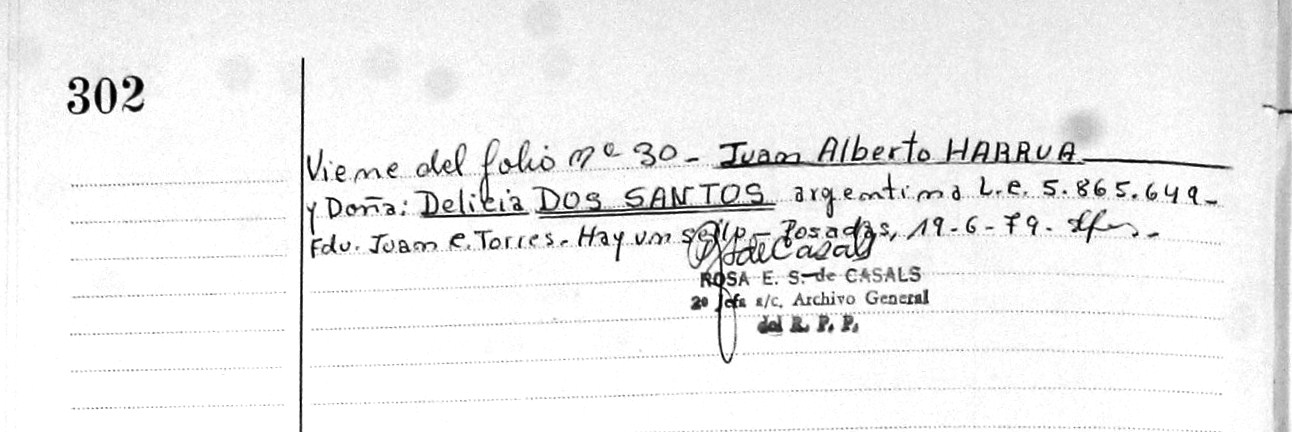 302
Viene del folio nº 30 - Juan Alberto HARRUA
y Doña: Delicia DOS SANTOS argentina L.e. 5.865.649-
Fdo. Juan e. Torres. Hay un sello - Posadas, 19-6-79.
de Casals
ROSA E. S. de CASALS
2º Jefa s/c. Archivo General
del R. P. P.